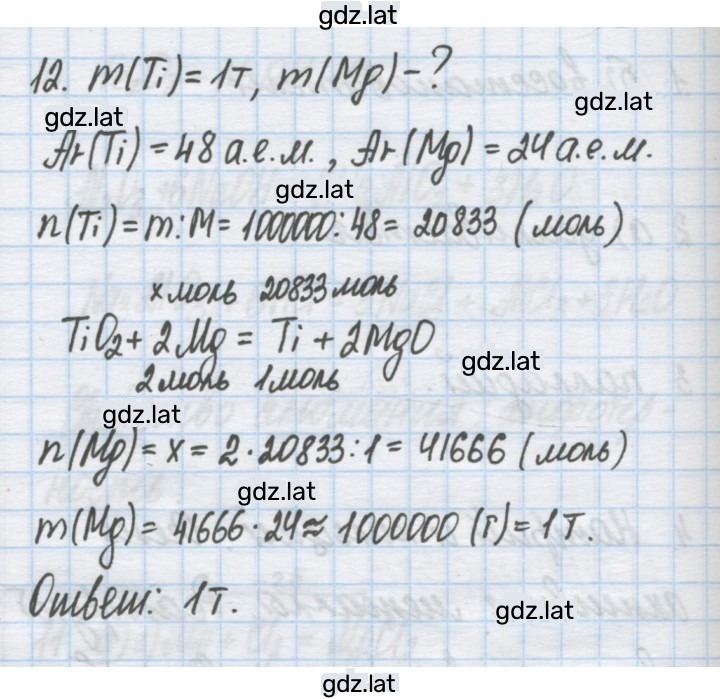 gdz.lat
12. m(Ti) = 1т, m(Mg) - ?
gdz.lat
gdz.lat
Ar(Ti) = 48 а.е.м., Ar(Mg) = 24 а.е.м.
gdz.lat
n(Ti) = m:M = 1000000:48 = 20833 (моль)
x моль 20833 моль
TiO₂ + 2Mg = Ti + 2MgO
gdz.lat
2 моль 1 моль
gdz.lat
n(Mg) = x = 2·20833:1 = 41666 (моль)
gdz.lat
m(Mg) = 41666·24 ≈ 1000000 (г) = 1т.
Ответ: 1т.
gdz.lat
gdz.lat